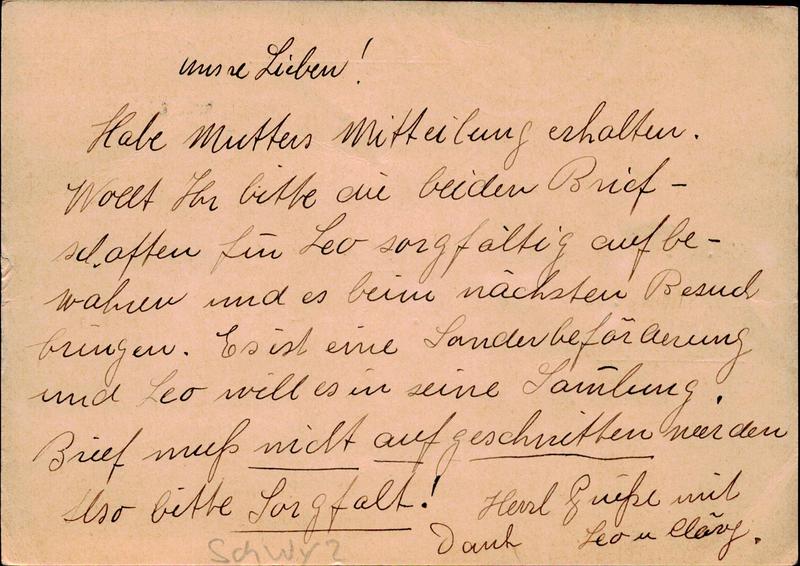 unsre Lieben!
Habe Mutters Mitteilung erhalten.
Wollt Ihr bitte die beiden Brief-
schaften für Leo sorgfältig aufbe-
wahren und es beim nächsten Besuch
bringen. Es ist eine Sonderbeförderung
und Leo will es in seine Sam̅lung.
Brief muß nicht aufgeschnitten werden
Also bitte Sorgfalt! Herzl Grüße mit
Dank Leo u
Schwyz